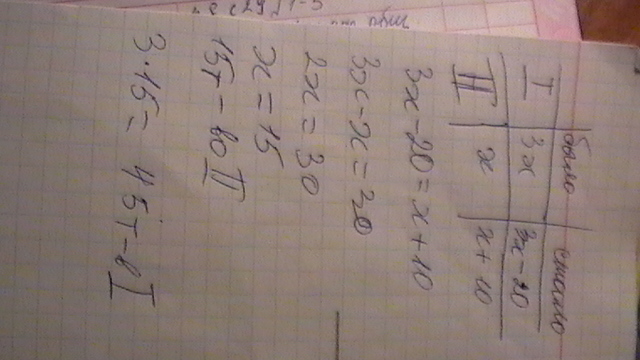 было стало
I 3x 3x-20
II x x+10
3x-20=x+10
3x-x=30
2x=30
x=15
15т-во II
3·15= 45т-в I